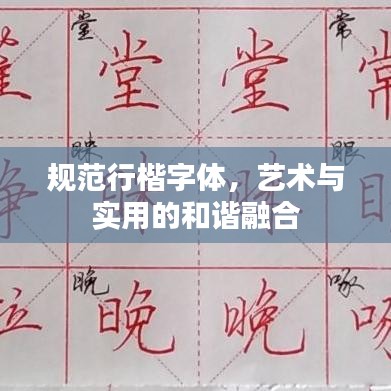 堂 常
堂 常
眼
规范行楷字体，艺术与
实用的和谐融合
晚 啄
晚